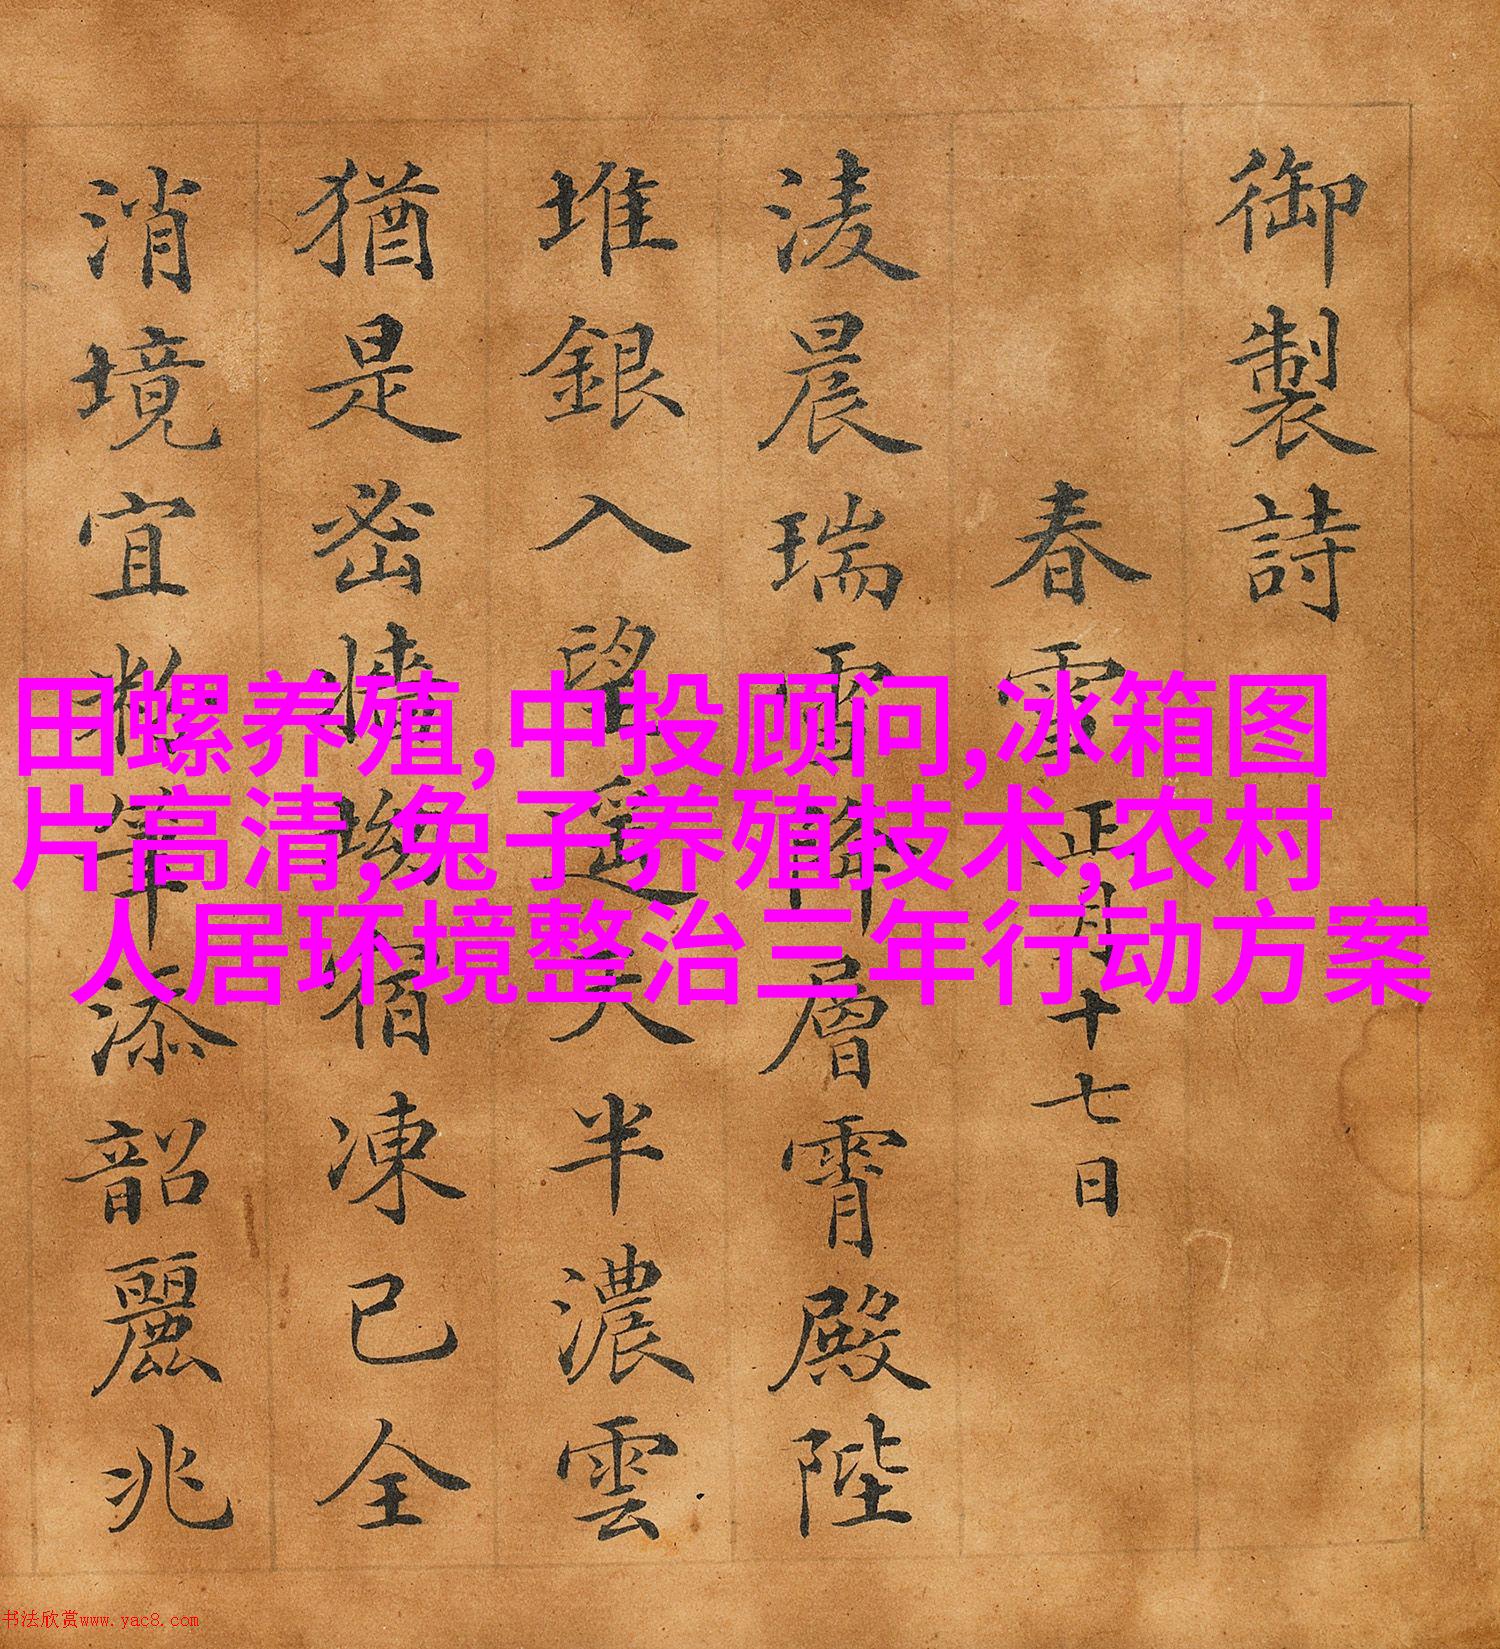 御製詩
春雪正月十七日
淩晨瑞雪降層霄殿陛
堆銀入望遥天半濃雲
猶是密宿凍已全
消境宜添韶麗兆
田螺养殖,中投顾问,冰箱图
片高清,兔子养殖技术,农村
人居环境整治三年行动方案
书法欣赏www.yac8.com